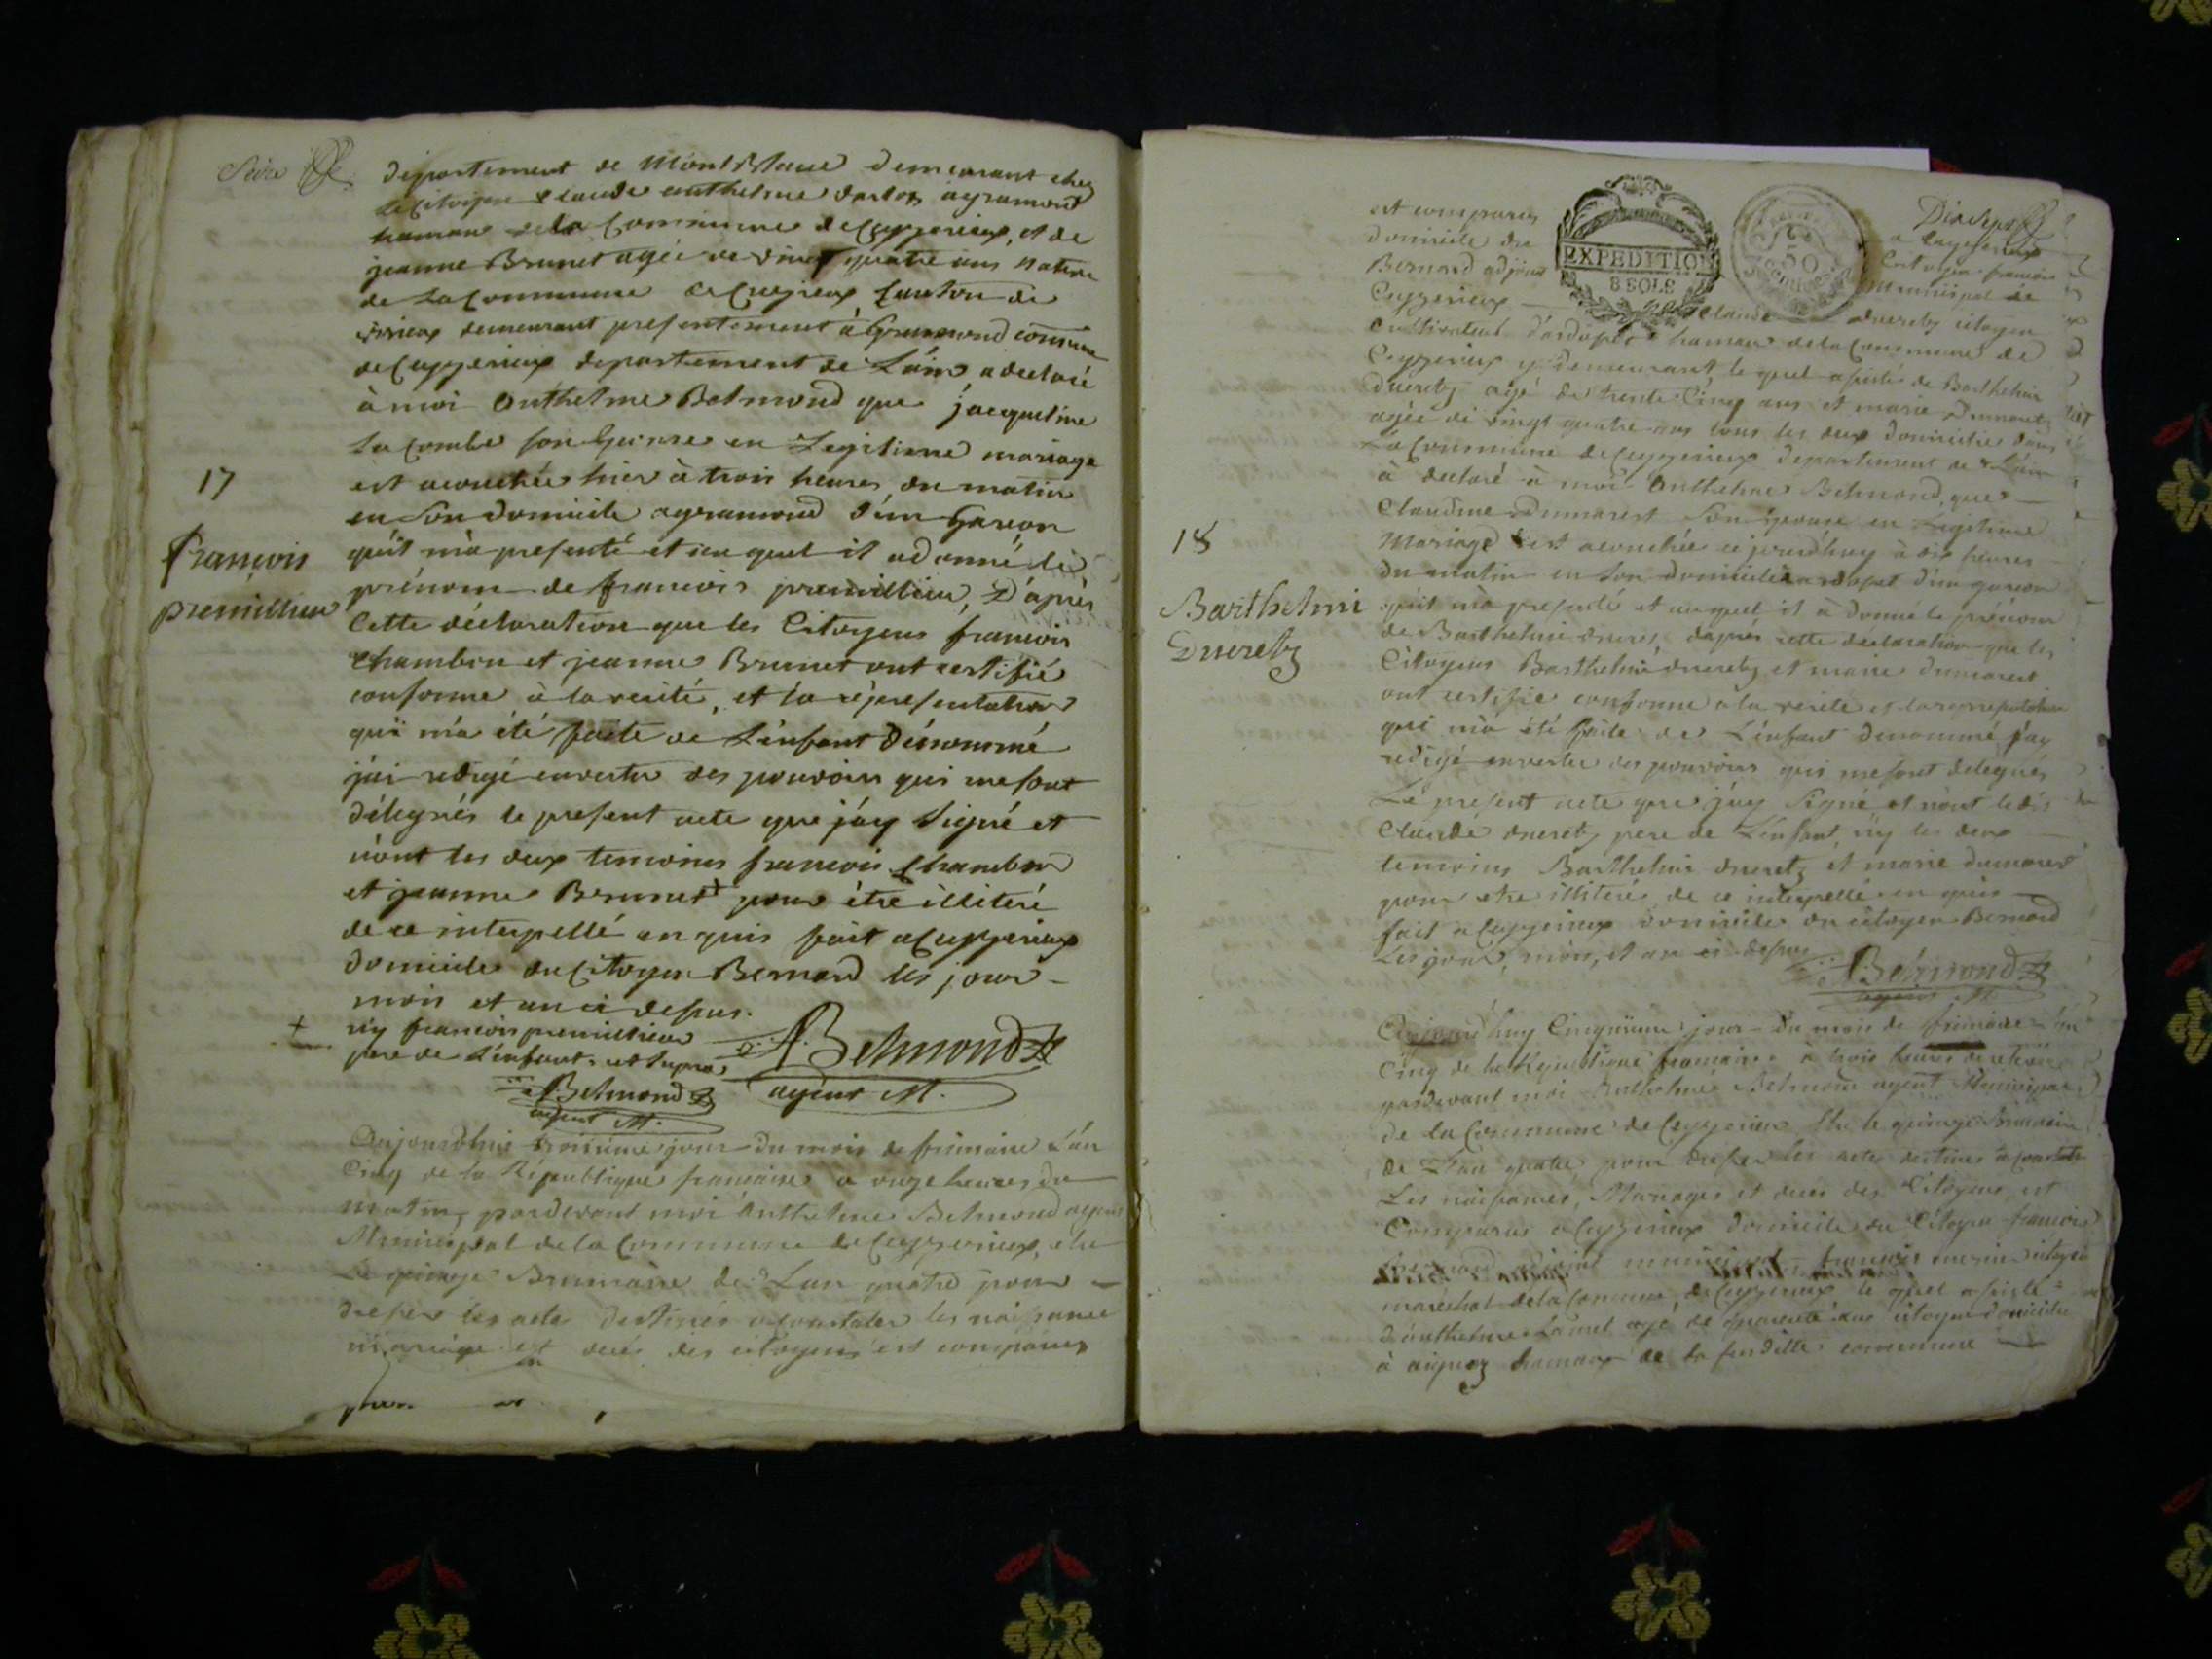 Seize
departement de Montblanc demeurant chez
le Citoyen Claude anthelme agramond
hameau de la Commune de Ceyzerieux, et de
jeanne Brunet agée de vingt quatre ans native
de la Commune de Cuzieux Canton de
virieux demeurant presentement à Gramond comune
de Ceyzerieux departement de L'ain a declaré
à moi Anthelme Belmond que jacqueline
la Combe son Epouse en Legitime mariage
est acouchée hier à trois heures du matin
17
en son domicile agramond d'un Garcon
François
premillieu
qu'il m'a presenté et au quel il a donné le
prénom de francois premillieu, D'après
Cette déclaration que les Citoyens francois
Chambon et jeanne Brunet ont certifié
conforme à la verité, et la représentation
qui m'a été faite de L'enfant dénommé
j'ai redigé envertu des pouvoirs qui me sont
délegués le present acte que j'ay Signé et
n'ont les deux temoins francois Chambon
et jeanne Brunet + pour être illiteré
de ce interpellé en quis fait a Ceyzerieux
domicile du Citoyen Bernard les jour
mois et an ci dessus.
+ n'y francois premillieu
pere de L'enfant, ut supra
ABelmond
agent M.
Belmond
agent M.
Aujourdhui troisieme jour du mois de frimaire L'an
Cinq de la République francaise a onze heures du
matin, pardevant moi Anthelme Belmond agent
Municipal de la Commune de Ceyzerieux, elu
Le quinze Brumaire de L'an quatre pour
dresser les acte destinés a constater les naissance
mariage et decés des citoyens est comparus
Dix Sept
est comparus a Ceyzerieux
domicile du Citoyen francois
Bernard adjoint municipal de
EXPEDITION
8 SOLS
50
Ceyzerieux Claude Dueretz citoyen
Cultivateur d'ardosset hameau de la Commune de
Ceyzerieux y demeurant le quel assisté de Barthelmi
Dueretz agé de trente Cinq ans et marie Dumarest
agée de vingt quatre ans tous les deux domicilié dans
La Commune de Ceyzerieux departement de L'ain
à declaré à moi Anthelme Belmond, que
Claudine Dumarest son Epouse en Legitime
18
Mariage est acouchée ce jourdhuy à dix heures
du matin en son domicile a d'un garcon
Barthelmi
Dueretz
qu'il m'a presenté et auquel il à donné le prénom
de Barthelmi Dueretz, daprés cette declaration que les
Citoyens Barthelmi Dueretz et marie Dumarest
ont certifié conforme à la verité et la representation
qui m'a été faite de L'enfant denommé j'ay
redigé envertu des pouvoirs qui me sont delegués
Le present acte que j'ay Signé et n'ont ledit
Claude Dueretz pere de L'enfant, n'y les deux
temoins Barthelmi Dueretz et marie dumarest
pour etre illiteré de ce interpellé en quis
fait a Ceyzerieux domicile du citoyen Bernard
Les jour, mois, et an ci dessus
ABelmond
agent M.
Aujourdhuy Cinquieme jour du mois de frimaire L'an
Cinq de la Republique francaise à trois heures de relevé
pardevant moi Anthelme Belmond agent Municipal
de la Commune de Ceyzerieux Elu le quinze Brumaire
de L'an quatre pour dresser les acte destinés a constater
Les naissances, Mariages et deces des Citoyens, est
Comparus a Ceyzerieux domicile du Citoyen francois
Bernard adjoint municipal francois citoyen
maréchal de la Commune de Ceyzerieux le quel assisté
d'anthelme agé de quarente ans citoyen domicilié
à aignoz hameau de la susditte commune